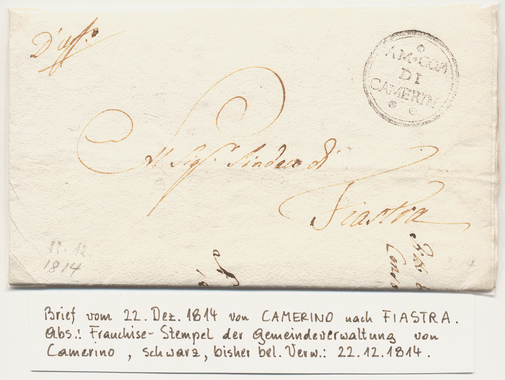 D'uff.o
AM·COM
DI
CAMERINO
Al Sig.r Sindaco di
Fiastra
22.12.
1814
Brief vom 22. Dez. 1814 von CAMERINO nach FIASTRA.
Abs.: Franchise-Stempel der Gemeindeverwaltung von
Camerino, schwarz, bisher bel. Verw.: 22.12.1814.